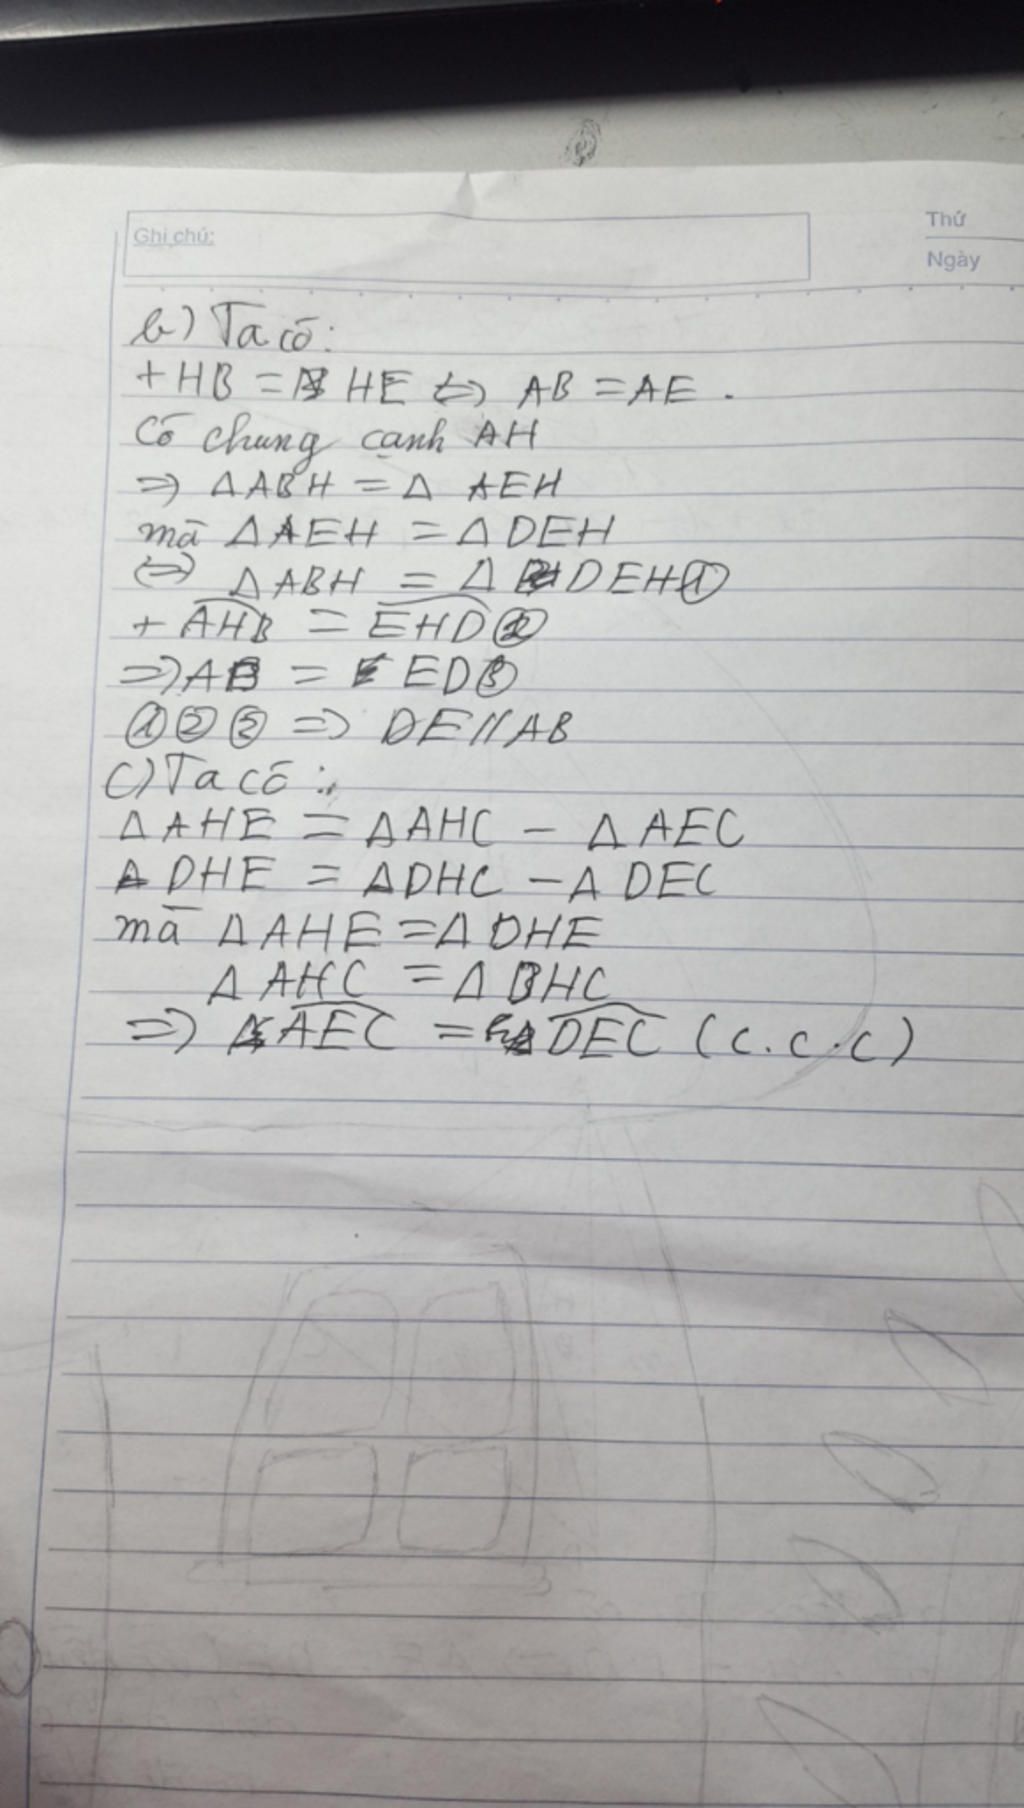 Ghi chú:
Thứ
Ngày
b) Ta có:
+ HB = HE ⇔ AB = AE.
Có chung cạnh AH
⇒ ΔABH = Δ AEH
mà ΔAEH = ΔDEH
⇔ ΔABH = Δ DEH ①
+ AHB = EHD ②
⇒ AB = ED ③
① ② ③ ⇒ DE // AB
c) Ta có:
ΔAHE = ΔAHC - ΔAEC
ΔDHE = ΔDHC - ΔDEC
mà ΔAHE = ΔDHE
ΔAHC = ΔDHC
⇒ AEC = DEC (c.c.c)